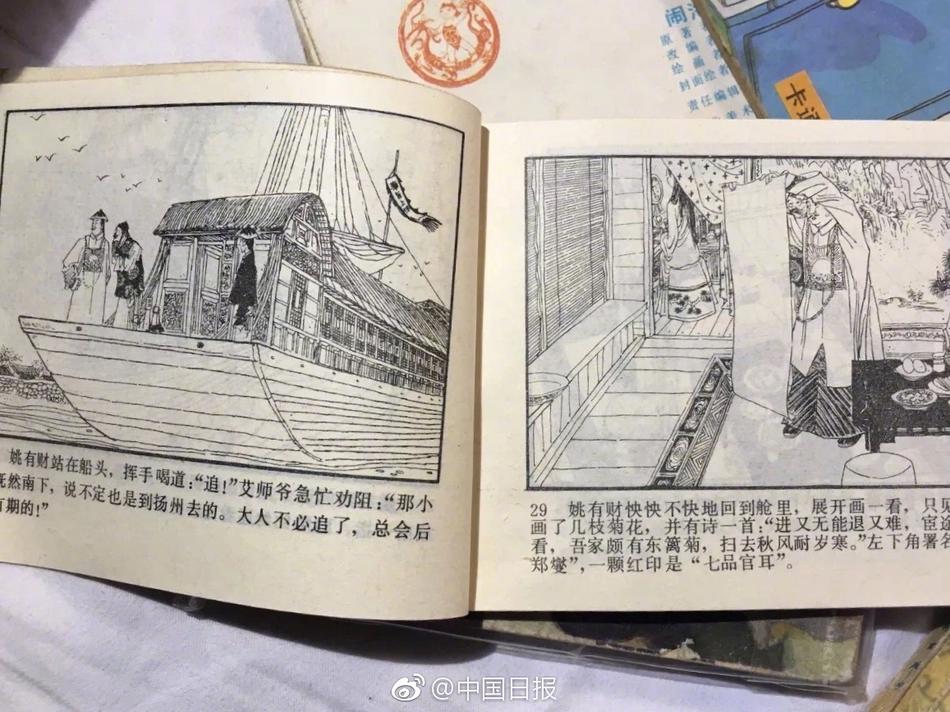 闹
原著
改编
绘画
封面绘者
责任编辑
美术
姚有财站在船头，挥手喝道：“追！”艾师爷急忙劝阻：“那小
既然南下，说不定也是到扬州去的。大人不必追了，总会后
有期的！”
29 姚有财怏怏不快地回到舱里，展开画一看，只见
画了几枝菊花，并有诗一首：“进又无能退又难，宦途
看，吾家颇有东篱菊，扫去秋风耐岁寒。”左下角署名
郑燮”，一颗红印是“七品官耳”。
@中国日报